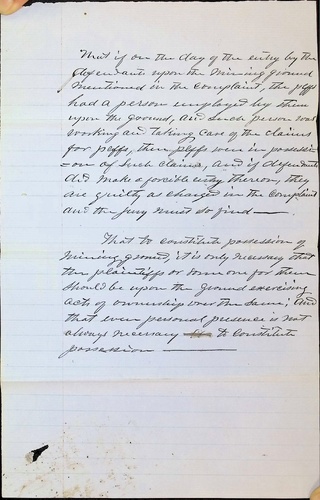 That if on the day of the entry by the
defendants upon the mining ground
mentioned in the complaint, the plffs
had a person employed by them
upon the ground, and such person was
working and taking care of the claims
for plffs, then plffs were in possessi-
=on of such claims, and if defendants
did make a forcible entry thereon, they
are guilty as charged in the complaint
and the jury must so find —
That to constitute possession of
mining ground, it is only necessary that
the plaintiffs or some one for them
should be upon the ground exercising
acts of ownership over the same; and
that even personal presence is not
always necessary to constitute
possession —